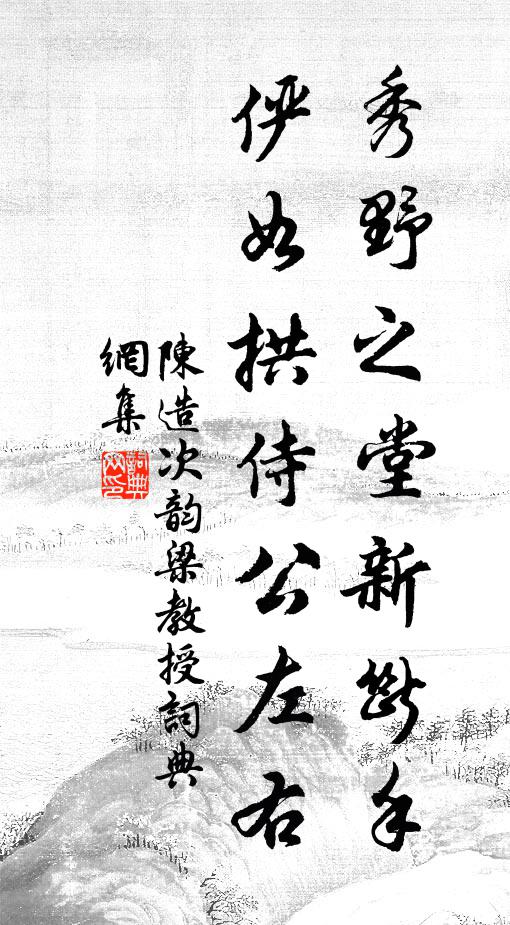 秀野之堂新斲手
俨如拱侍公左右
陳造次韵梁教授詞典
網集
詞典